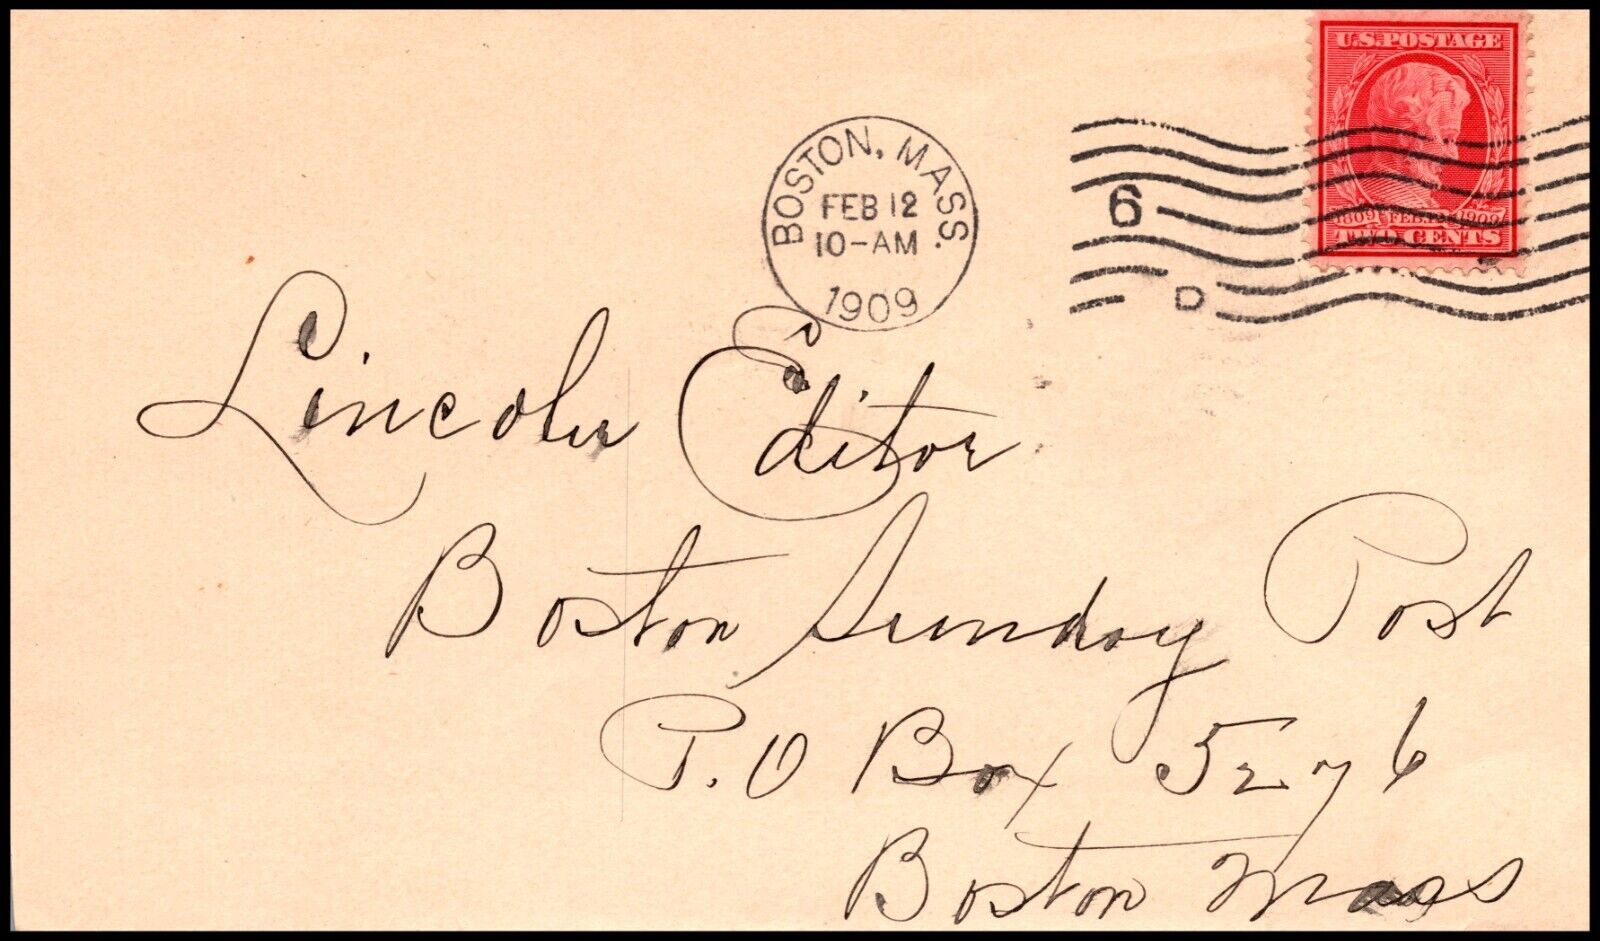 U.S. POSTAGE
1809 FEB. 12. 1909
TWO CENTS
BOSTON, MASS.
FEB 12
10-AM
1909
6
D
Lincoln Editor
Boston Sunday Post
P.O Box 5276
Boston Mass